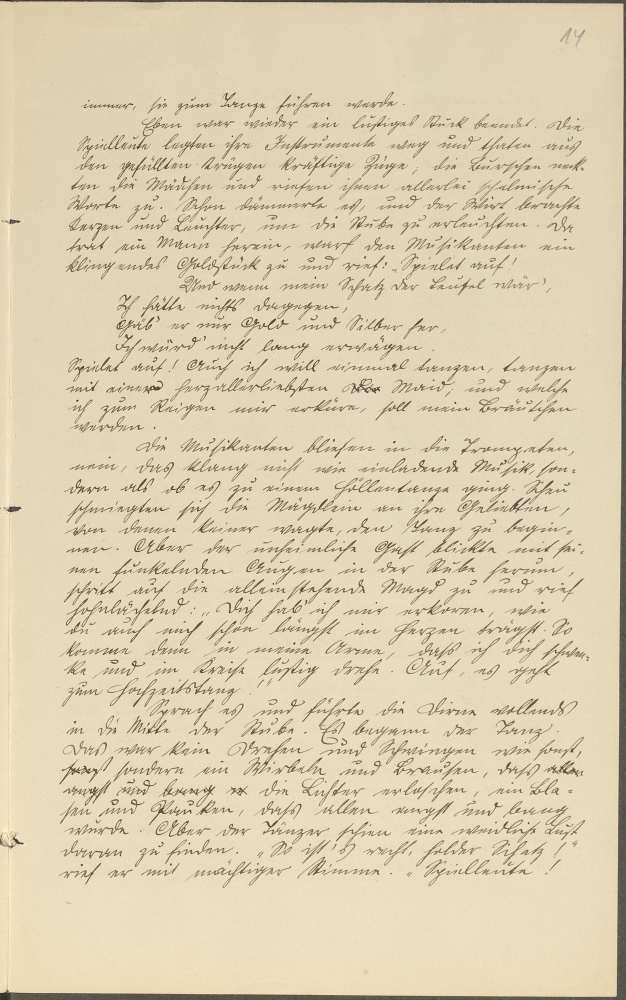 14
immer, sie zum Tanze führen werde.
Eben war wieder ein lustiges Stück beendet. Die
Spielleute legten ihre Instrumente weg und thaten aus
den gefüllten Krügen kräftige Züge; die Burschen neck-
ten die Mädchen und riefen ihnen allerlei schelmische
Worte zu. Schon dämmerte es, und der Wirt brachte
Kerzen und Leuchter, um die Stube zu erleuchten. Da
trat ein Mann herein, warf den Musikanten ein
klingendes Goldstück zu und rief: „Spielet auf!
Und wenn mein Schatz der Teufel wär',
Ich hätte nichts dagegen,
Gäb' er nur Gold und Silber her,
Ich würd' nicht lang erwägen.
Spielet auf! Auch ich will einmal tanzen, tanzen
mit einer herzallerliebsten Maid, und welche
ich zum Reigen mir erküre, soll mein Bräutchen
werden.
Die Musikanten bliesen in die Trompeten,
nein, das klang nicht wie einladende Musik, son-
dern als ob es zu einem Höllentanze ging. Scheu
schmiegten sich die Mägdlein an ihre Geliebten,
von denen keiner wagte, den Tanz zu begin-
nen. Aber der unheimliche Gast blickte mit sei-
nen funkelnden Augen in der Stube herum,
schritt auf die alleinstehende Magd zu und rief
hohnlächelnd: „Dich hab' ich mir erkoren, wie
du auch mich schon längst im Herzen trägst. So
komme denn in meine Arme, daß ich dich schwen-
ke und im Kreise lustig drehe. Auf, es geht
zum Hochzeitstanz!"
Sprach es und führte die Dirne vollends
in die Mitte der Stube. Es begann der Tanz.
Das war kein Drehen und Schwingen wie sonst,
sonst sondern ein Wirbeln und Brausen, dass allen
angst und bang er die Lichter erloschen, ein Bla-
sen und Pauken, dass allen angst und bang
wurde. Aber der Tänzer schien eine weidliche Lust
daran zu finden. „So ist's recht, holder Schatz!"
rief er mit mächtiger Stimme. „Spielleute!